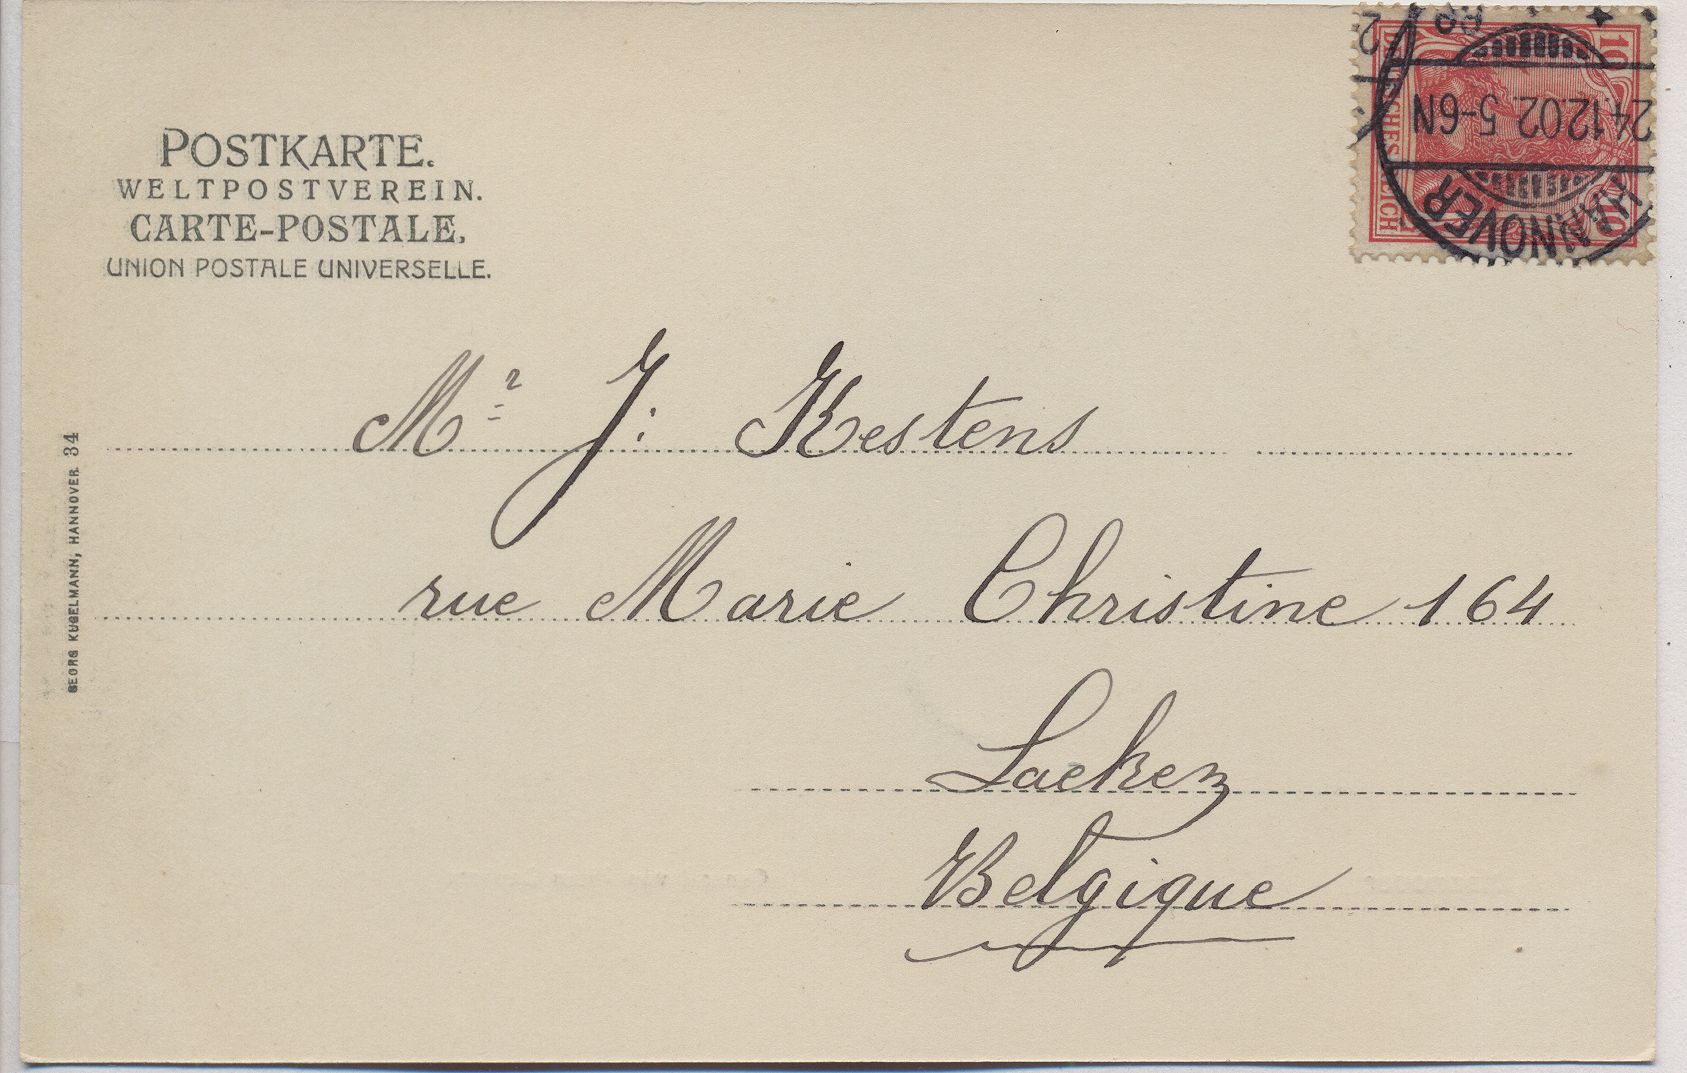 POSTKARTE.
WELTPOSTVEREIN.
CARTE-POSTALE.
UNION POSTALE UNIVERSELLE.
10 10
DEUTSCHES REICH
HANNOVER
24.12.02. 5-6N
Mr J: Kestens
rue Marie Christine 164
Laeken
Belgique
GEORG KUGELMANN, HANNOVER 34